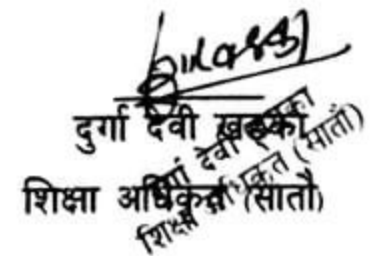 दुर्गा देवी खड्का
शिक्षा अधिकृत (सातौ)
दुर्गा देवी खड्का
शिक्षा अधिकृत (सातौं)